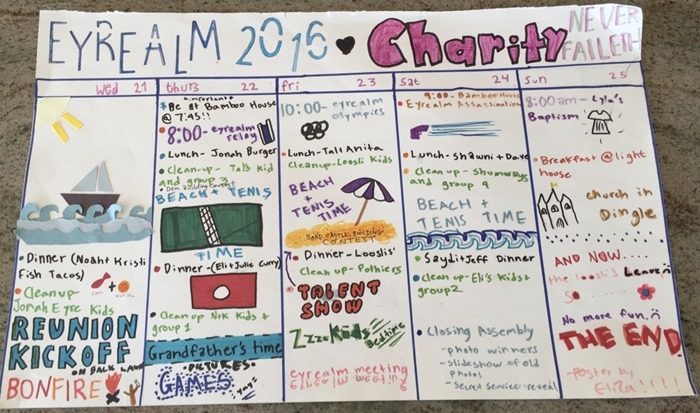 EYREALM 2016 ♥ Charity NEVER
FAILETH
Wed 21
• Dinner (Noah + Kristi
Fish Tacos)
• Cleanup-
Jonah Eyre Kids
REUNION
KICKOFF
ON BACK LAWN
BONFIRE
thurs 22
*important*
* Be at Bamboo House
@ 7:45!!
• 8:00- eyrealm
relay
• Lunch- Jonah Burger
• Clean-up- Tal's Kid
and group 3
BEACH + TENIS
TIME
• Dinner-(Eli + Julie Curry)
• Clean up NtK Kids +
group 1
Grandfather's time
• PICTURES•
GAMES yay!
fri 23
10:00- eyrealm
olympics
• Lunch- Tal + Anita
Cleanup-Loosli Kids
BEACH
+
TENNIS
TIME
SAND CASTLE BUILDING
CONTEST
• Dinner- Looslis'
Clean up- Pothiers
TALENT
SHOW
Zzzz Kids Bedtime
eyrealm meeting
sat 24
• 9:00- Bamboo House
Eyrealm Assassination
• Lunch- Shawni + Dave
• clean up- Shumways
and group 4
BEACH +
TENIS TIME
• Saydi + Jeff Dinner
• Clean up- Eli's Kids +
group 2
• Closing Assembly
- photo winners
- slideshow of old
photos
- secret service-reveal
sun 25
8:00am - Lyla's
Baptism
• Breakfast @ light
house
church in
Dingle
AND NOW....
the loosli's Leave
SO
No more fun.
THE END
-poster by
Eliza!!!!